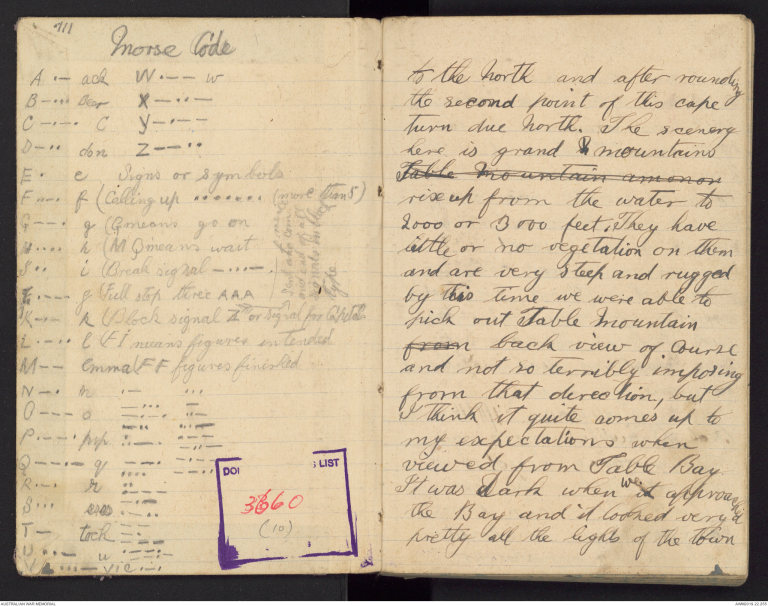 711
Morse Code
A ·– ack W ·–– w
B –··· Beer X –··–
C –·–· C Y –·––
D –·· don Z ––··
E · e Signs or symbols
F ··–· f (Calling up ········ (more than 5)
G ––· g (G means go on
H ···· h (MQ means wait
I ·· i (Break signal –···–
g Full stop three AAA
K –·– k (Block signal or signal for Capitals
L ·–·· l (FI means figures intended
M –– emma (FF figures finished
N –· n
O ––– o
P ·––· pip
Q ––·– q
R ·–· r
S ··· esses
T – tock
U ··– u
V ···– vic
LIST
3660
(10)
to the North and after rounding
the second point of this cape
turn due North. The scenery
here is grand & mountains
Table Mountain
rise up from the water to
2000 or 3000 feet. They have
little or no vegetation on them
and are very steep and rugged
by this time we were able to
pick out Table Mountain
from back view of course
and not so terribly imposing
from that direction, but
I think it quite comes up to
my expectations when
viewed from Table Bay.
It was dark when we approached
the Bay and it looked very
pretty all the lights of the town
AUSTRALIAN WAR MEMORIAL